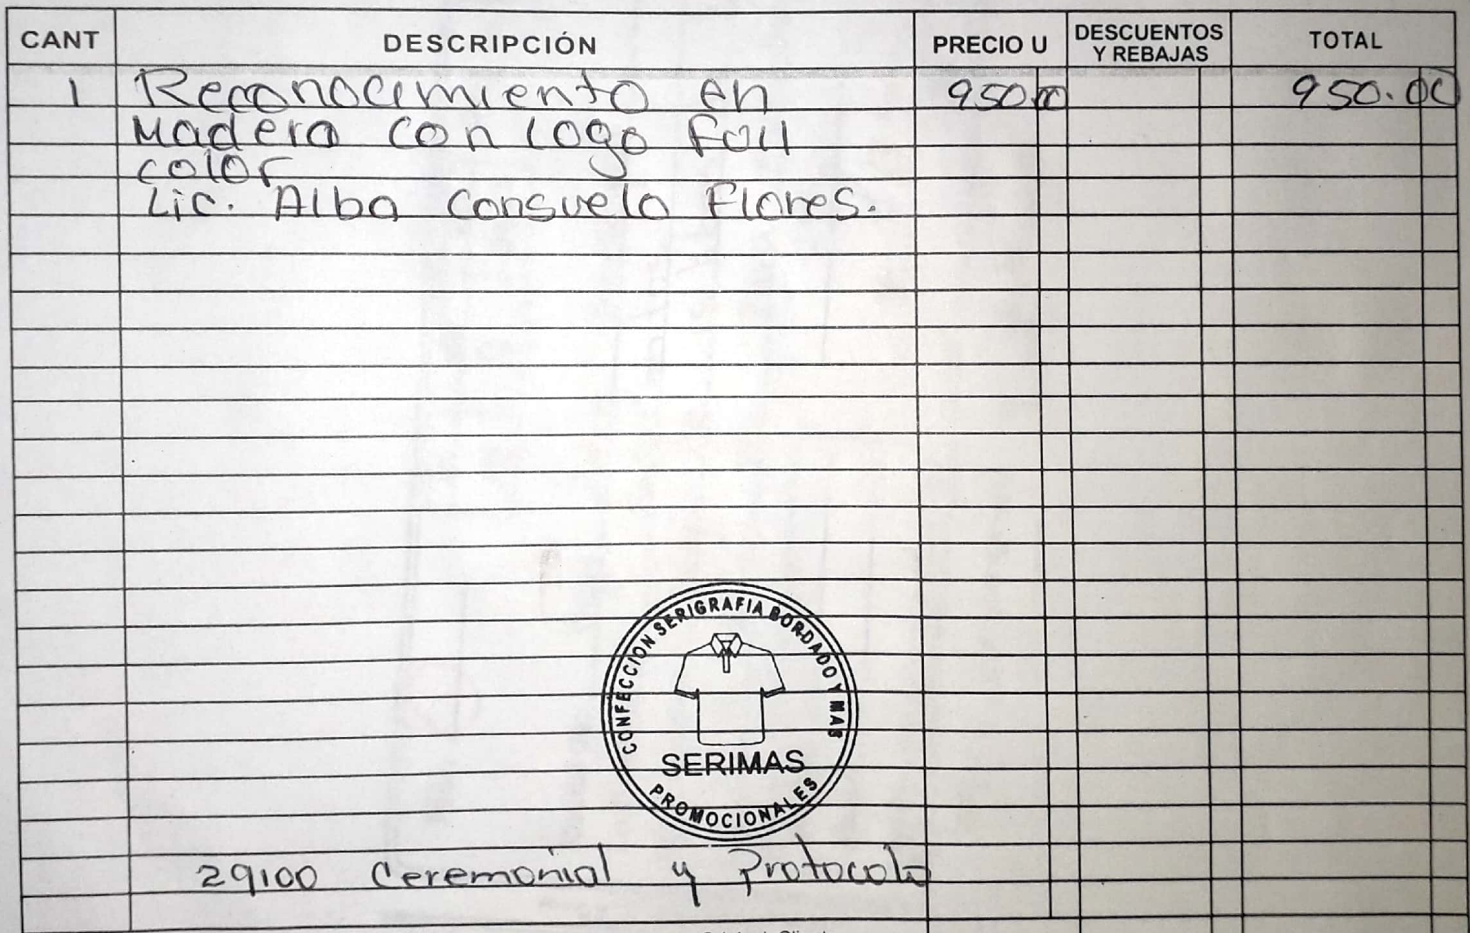 CANT DESCRIPCIÓN PRECIO U DESCUENTOS Y REBAJAS TOTAL
1 Reconocimiento en 950.00 950.00
Madera con logo Full
color
Lic. Alba Consuelo Flores.
CONFECCION SERIGRAFIA BORDADO Y MAS
SERIMAS
PROMOCIONALES
29100 Ceremonial y Protocolo